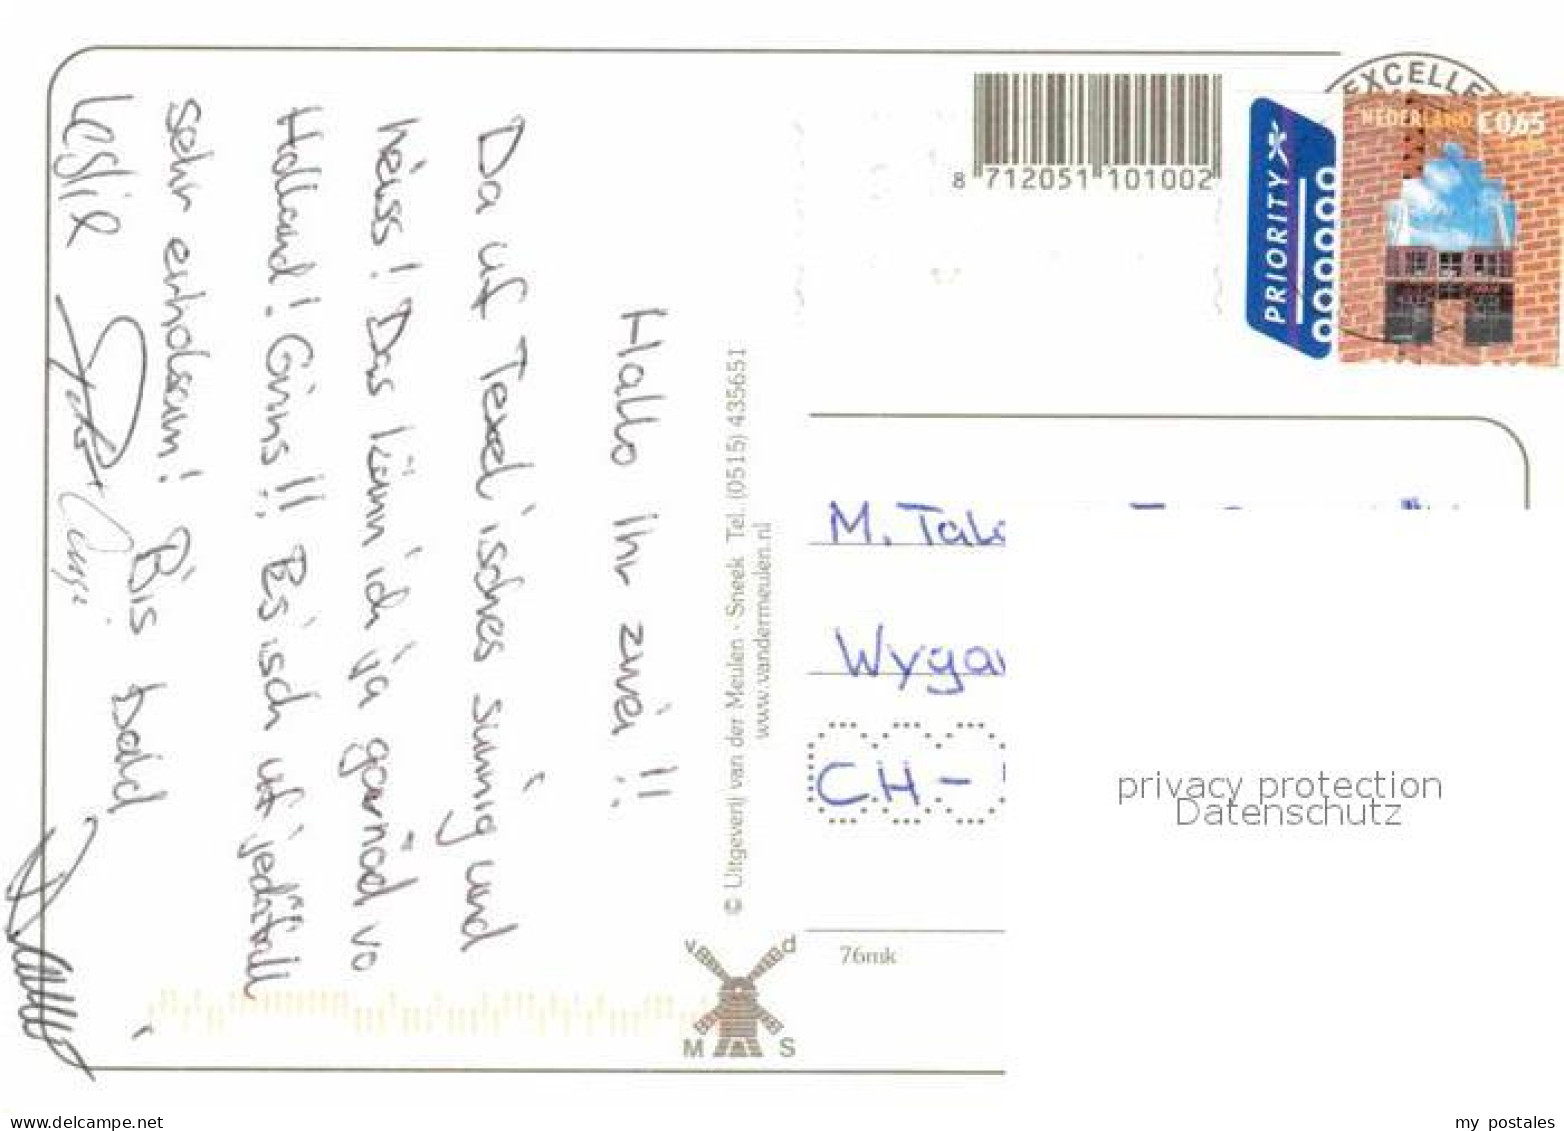 Hallo ihr zwei!!
Da uf Texel isches sunnig und
heiss! Das känn ich ja garnöd vo
Holland! Grins!! Es isch uf jedefall
sehr erholsam! Bis bald
Leslie
© Uitgeverij van der Meulen - Sneek Tel. (0515) 435651
www.vandermeulen.nl
v d
M S
8 712051 101002
PRIORITY
EXCELLE
NEDERLAND €0,65
M. Tak
Wyga
CH -
76mk
privacy protection
Datenschutz
www.delcampe.net
my_postales